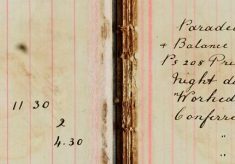 11 30
2
4.30
Parade
& Balance
Ps 208 Pri
Night d
Worked
Conferre
"
"